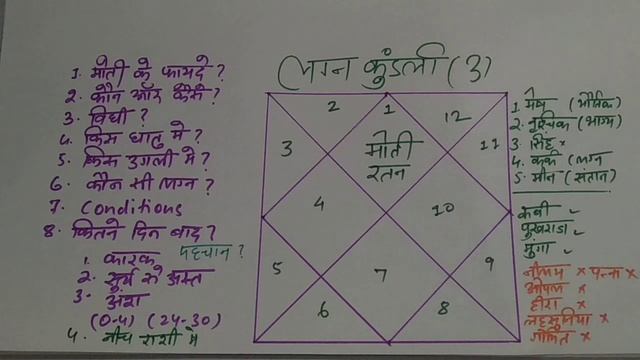 1. मोती के फायदे?
2. कौन और कैसे?
3. विधी?
4. किस धातु मे?
5. किस उगली मे?
6. कौन सी लग्न?
7. Conditions
8. कितने दिन बाद?
पहचान?
1. कारक
2. सूर्य से अस्त
3. अंश
(0-4) (24-30)
4. नीच राशी मे
लग्न कुंडली (3)
2 1 12
3 11
मोती
रतन
4 10
5 7 9
6 8
1 मेष (भौतिक)
2. वृश्चिक (भाग्य)
3. सिंह ×
4. कर्क (लग्न
5. मीन (संतान)
पुखराज ✓
मुंगा ✓
नीलम × पन्ना ×
ओपल ×
हीरा ×
लहसुनिया ×
गोमेद ×